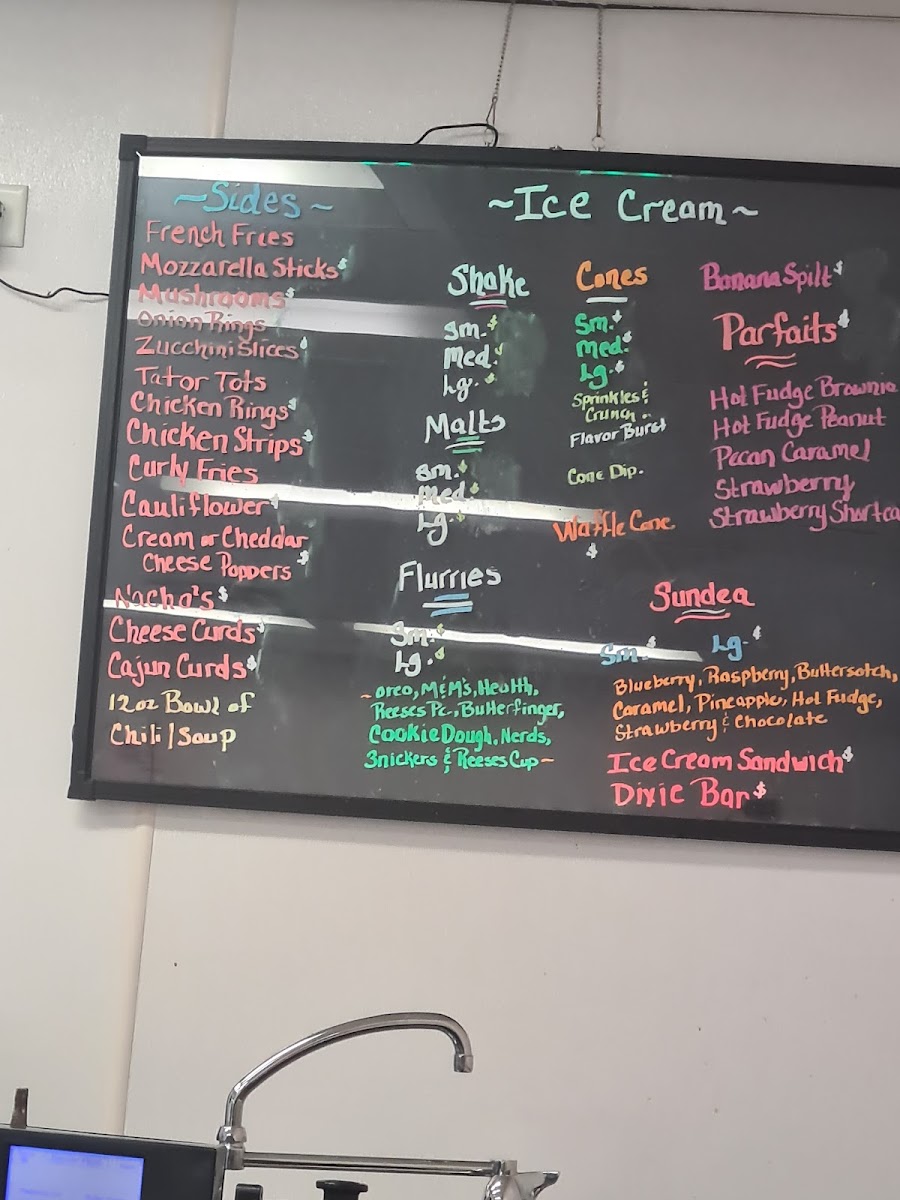 ~Sides~
French Fries
Mozzarella Sticks $
Mushrooms $
Onion Rings
Zucchini Slices $
Tator Tots
Chicken Rings $
Chicken Strips $
Curly Fries
Cauliflower $
Cream or Cheddar
Cheese Poppers $
Nacho's $
Cheese Curds $
Cajun Curds $
12oz Bowl of
Chili/Soup
~Ice Cream~
Shake
Sm. $
Med. $
Lg. $
Malts
Sm. $
Med. $
Lg. $
Flurries
Sm. $
Lg. $
~ Oreo, M&M's, Heath,
Reeses Pc., Butterfinger,
Cookie Dough, Nerds,
Snickers & Reeses Cup ~
Cones
Sm. $
Med. $
Lg. $
Sprinkles &
Crunch ..
Flavor Burst
Cone Dip.
Waffle Cone
$
Banana Spilt $
Parfaits $
Hot Fudge Brownie
Hot Fudge Peanut
Pecan Caramel
Strawberry
Strawberry Shortca
Sundea
Sm. $ Lg. $
Blueberry, Raspberry, Buttersotch,
Caramel, Pineapple, Hot Fudge,
Strawberry & Chocolate
Ice Cream Sandwich $
Dixie Bar $